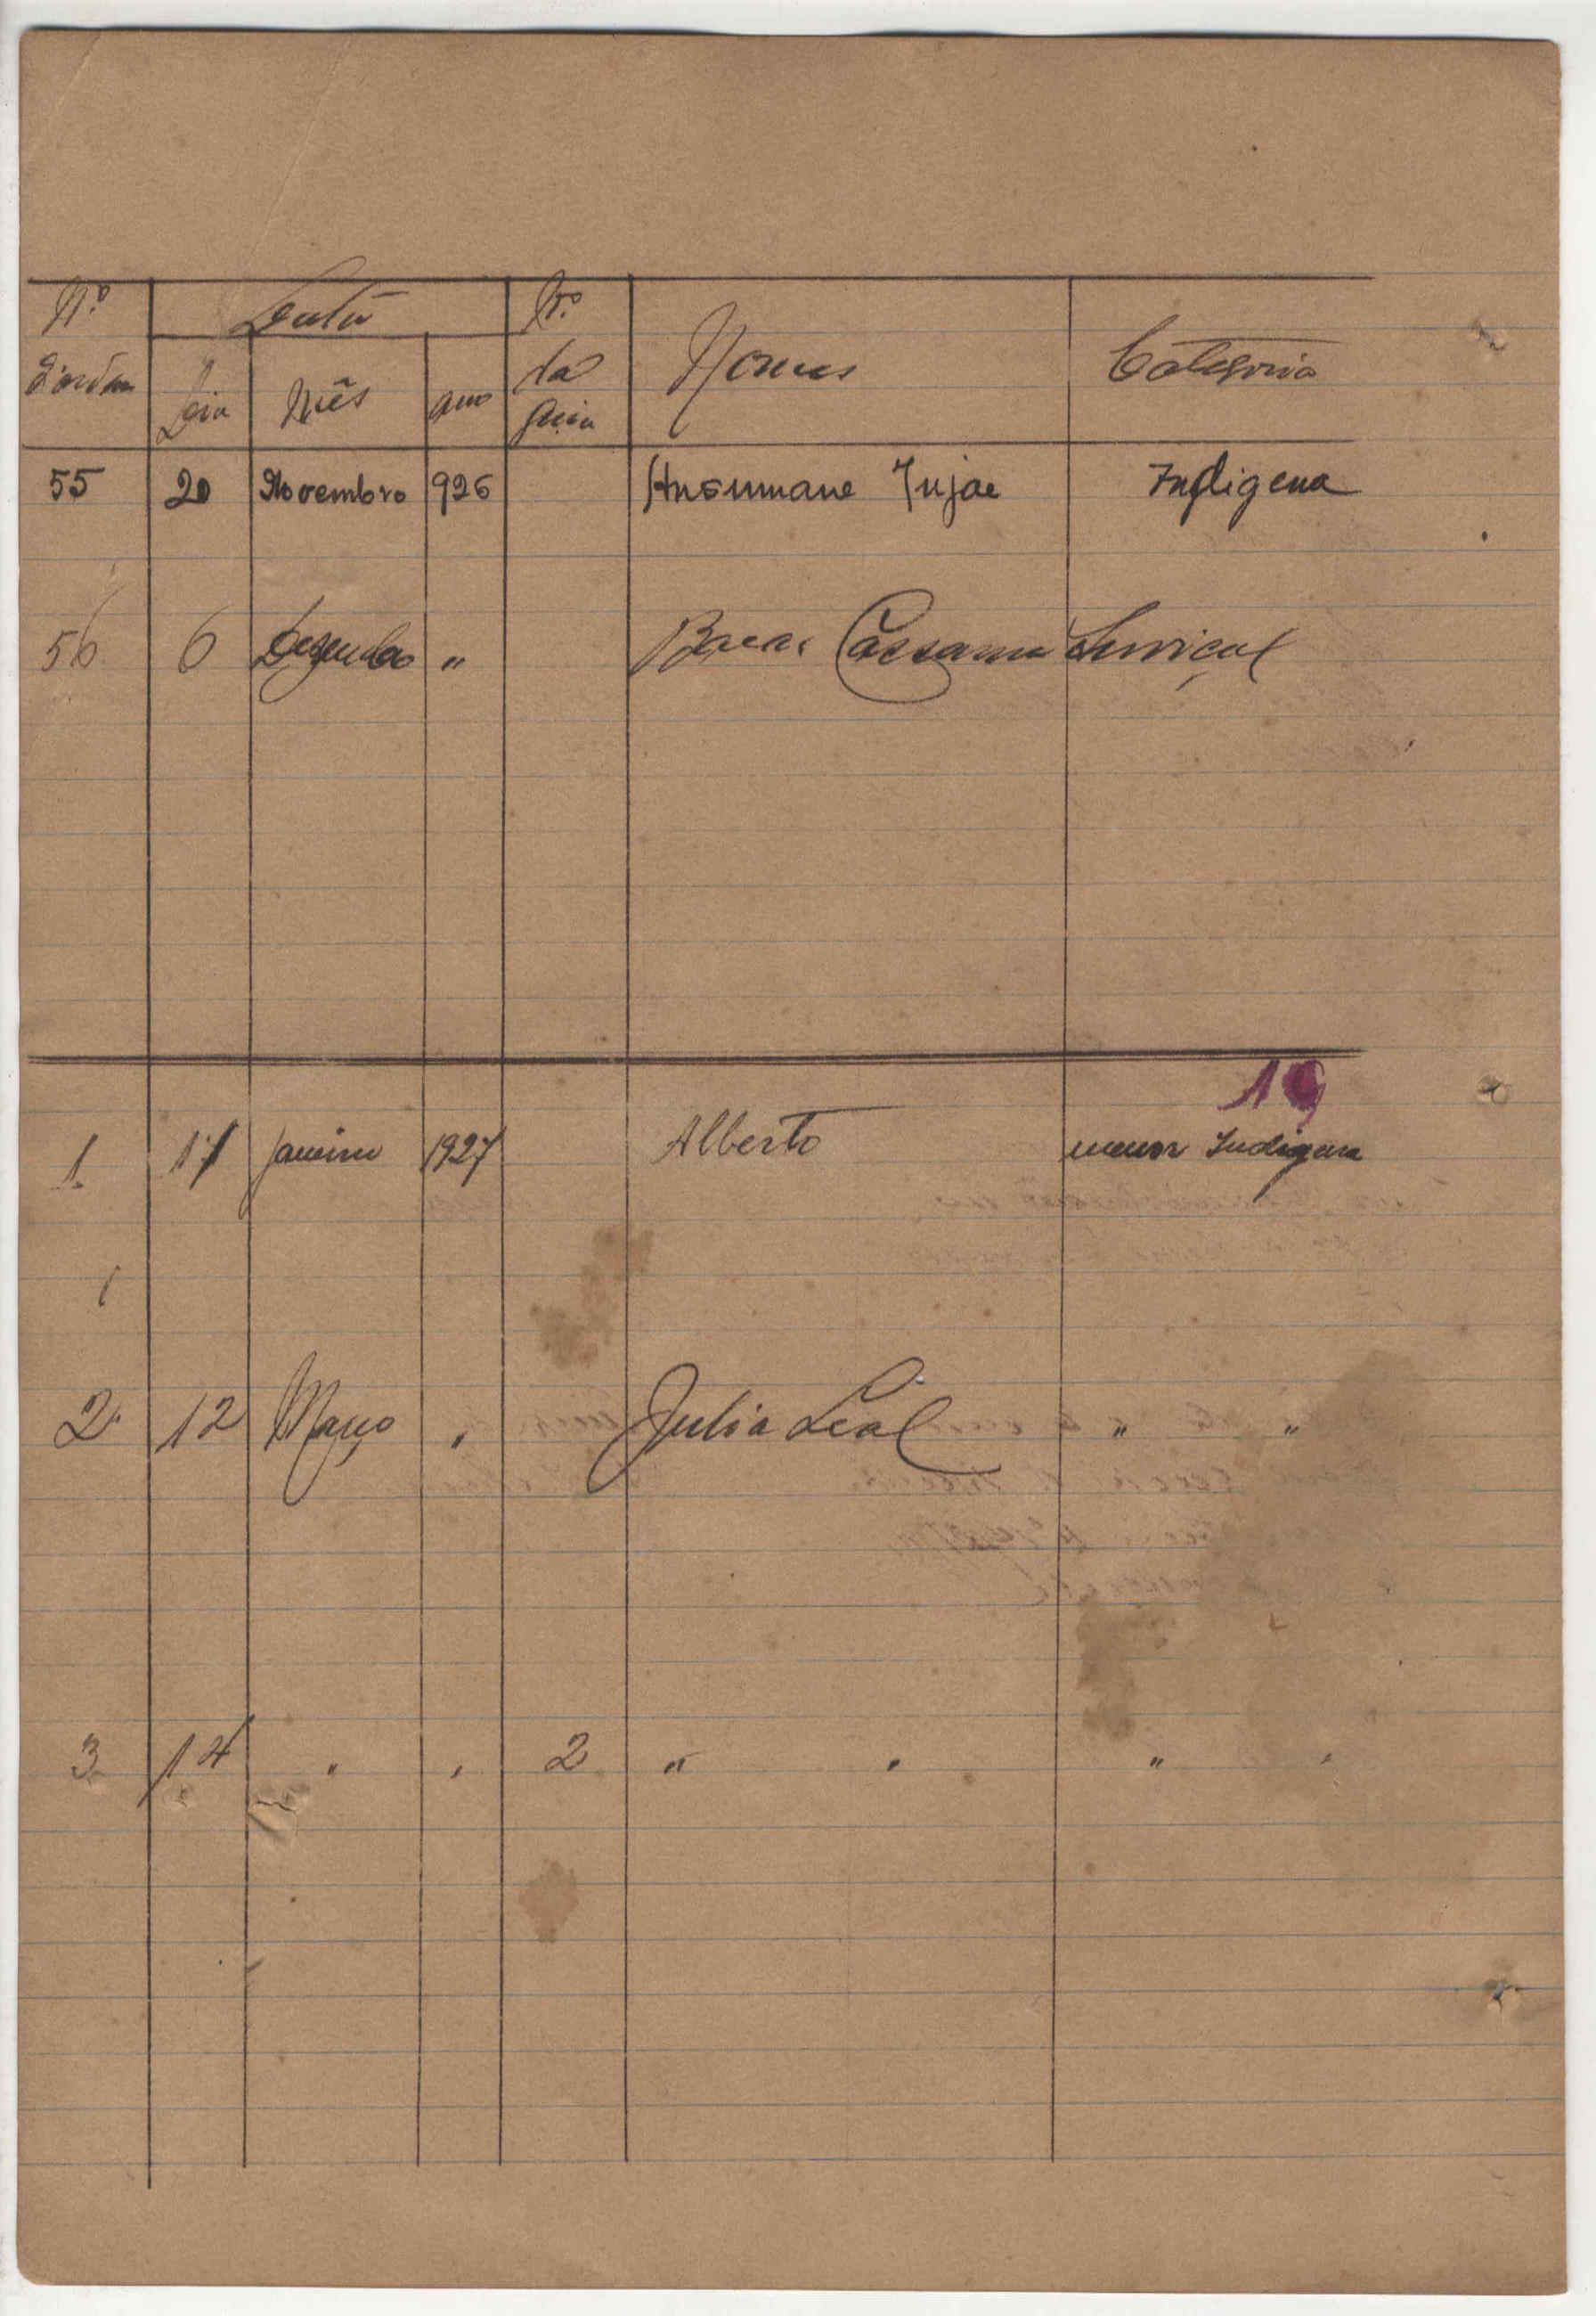 Nº Data Nº
d'ordem Dia Mês ano da guia Nomes Categoria
55 20 Novembro 926 Ansumane Injae Indigena
56 6 Dezembro " Bacar Cassama Serviçal
1 17 Janeiro 1927 Alberto menor Indigena
2 12 Março " Julia Leal " "
3 14 " " 2 " " " "